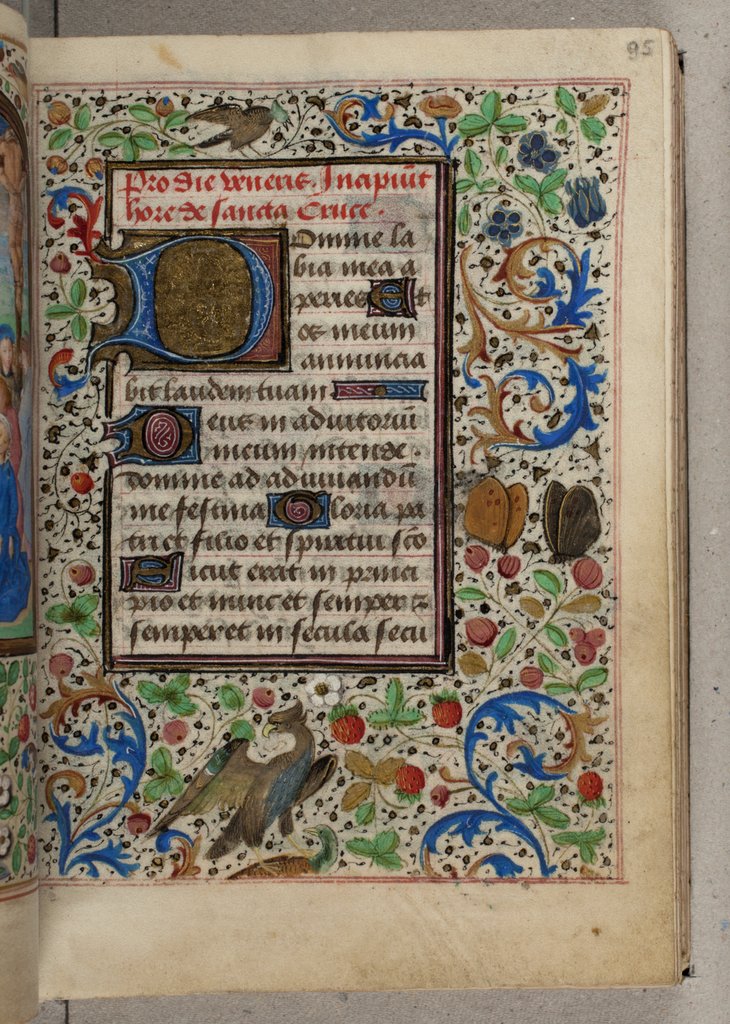 95
Pro die veneris. Incipiūt
hore de sancta Cruce.
Domine la
bia mea a
peries Et
os meum
annuncia
bit laudem tuam
Deus in adiutoriū
meum intende.
domine ad adiuuandū
me festina Gloria pa
tri et filio et spiritui sc̄o
Sicut erat in princi
pio et nunc et semper ⁊
semper et in secula secu